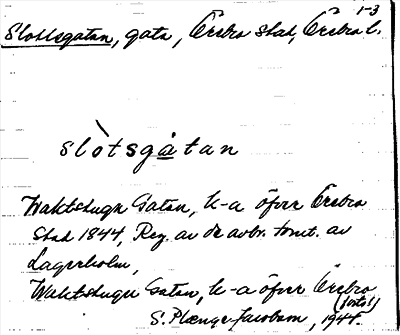 1-3
Slottsgatan, gata, Örebro stad, Örebro l.
slòtsgatan
Waktstuga Gatan, k-a öfver Örebro
Stad 1844, Reg. av de avbr. tomt. av
Lagerholm,
Waktstugu Gatan, k-a öfver Örebro
S. Plænge Jacobson, 1944.